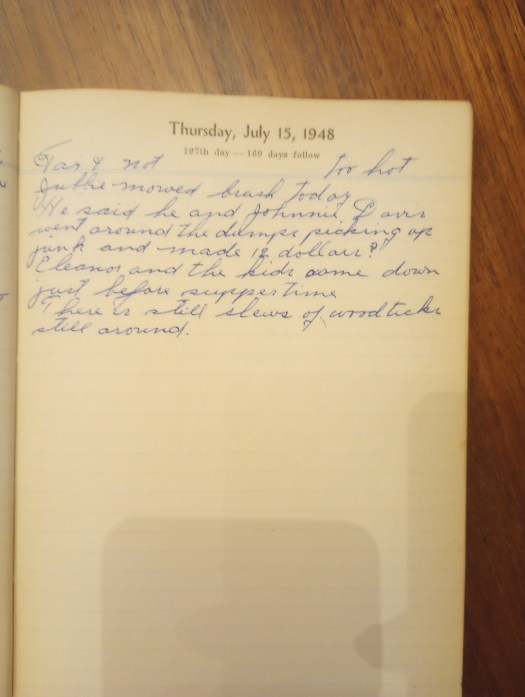 Thursday, July 15, 1948
197th day — 169 days follow
Fair & hot too hot
mowed brush today
He said he and Johnnie Davis
went around the dumps picking up
junk and made 12 dollars?
Eleanor and the kids came down
just before supper time
There is still slews of woodticks
still around.